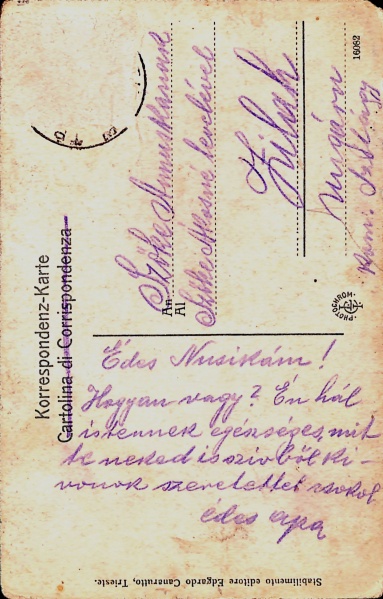 Korrespondenz-Karte
Cartolina di Corrispondenza
An
Al
Szőke Annuskának
Szőke Mórné levelével
Zilah
Ungarn
16082
PHOTOCHROM
Édes Nusikám!
Hogyan vagy? Én hál
istennek egészséges, mit
te neked is szivből ki-
vonok szeretettel csokol
édes apa
Stabilimento editore Edgardo Canarutto, Trieste.